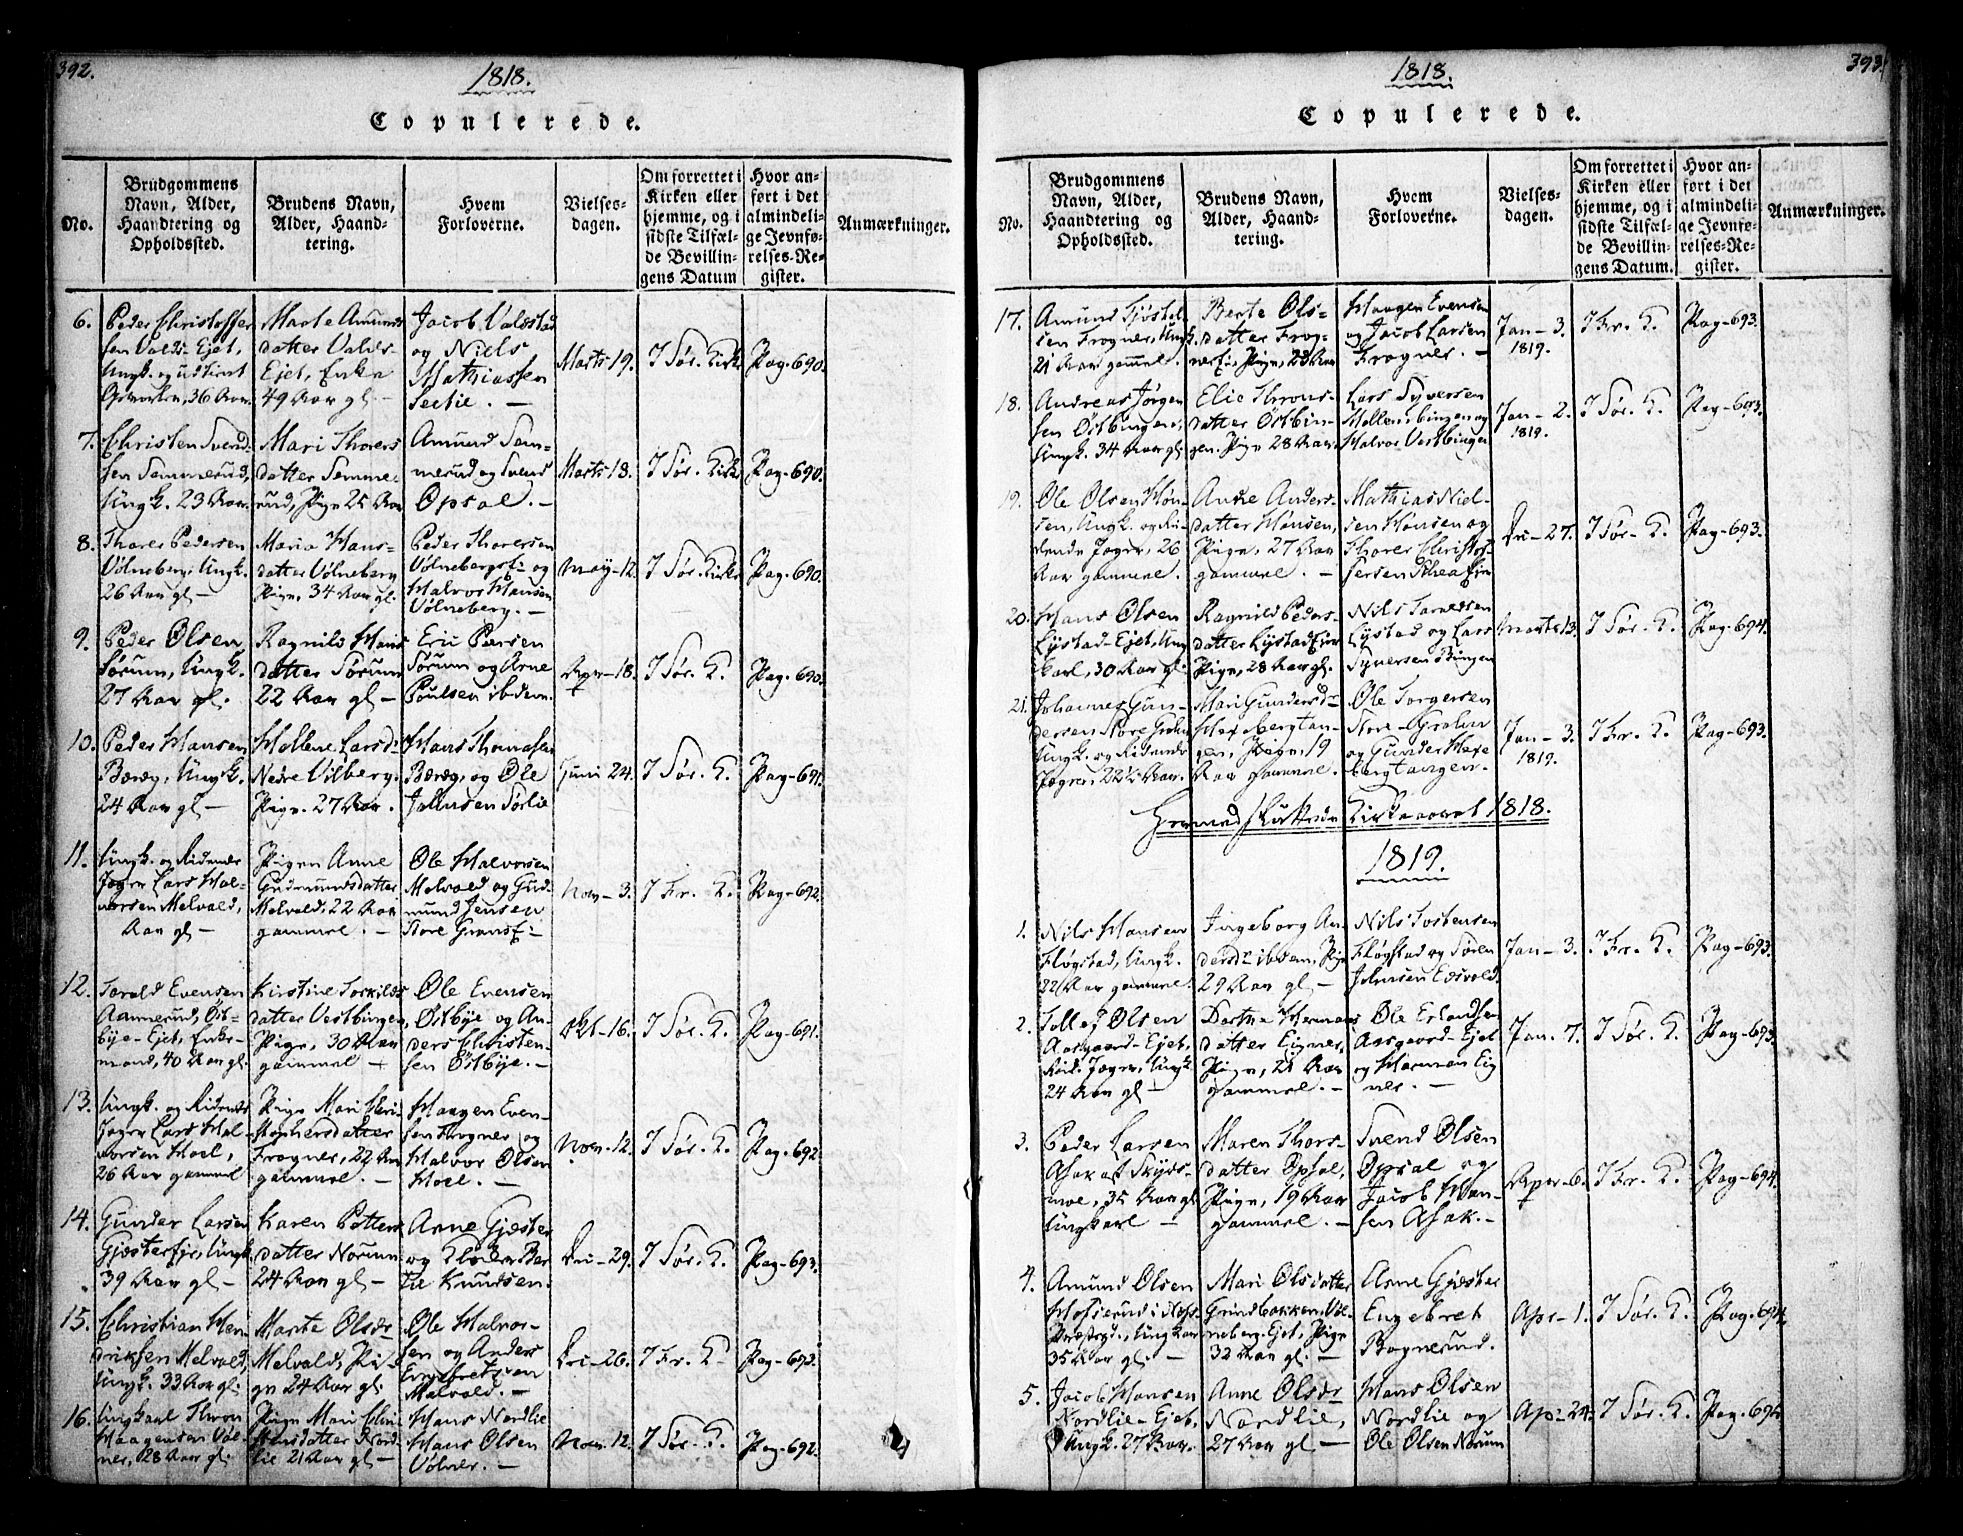 392.
1818.
Copulerede.
No.
Brudgommens Navn, Alder, Haandtering og Opholdssted.
Brudens Navn, Alder, Haandtering.
Hvem Forloverne.
Vielsesdagen.
Om forrettet i Kirken eller hjemme, og i sidste Tilfælde Bevillingens Datum
Hvor anført i det almindelige Jevnførelses-Register.
Anmærkninger.
6. Peder Christoffer
sen Valds-Ejet,
36 Aar.
Marte Amunds
datter Valds-
Ejet, Enke
49 Aar gl. –
Jacob Valdstad
og Niels
Mathiassen
Marts 19.
I Sør. Kirke
Pag. 690.
7. Christen Svend
sen Sammerud,
Ungk. 23 Aar.
Mari Thorers
datter Samme-
rud, Pign 25 Aar
Amund Sam-
merud og Svend
Opsal. –
Marts 18.
I Sør. Kirke
Pag. 690.
8. Thorer Pedersen
Völneberg, Ungk.
26 Aar gl –
Maria Hans-
datter Völneberg
Pign, 34 Aar gl.
Peder Thorersen
Völnebergs og
Halvor Hansen
Völneberg. –
May 12.
I Sør. Kirke
Pag. 690.
9. Peder Olsen
Sörum, Ungk.
27 Aar gl.
Ragnild Hans
datter Sörum
22 Aar gl –
Eric Pæersen
Sörum og Arne
Poulsen ibdem.
Apr – 18.
I Sør. K.
Pag. 690.
10. Peder Hansen
Bærøg, Ungk.
24 Aar gl –
Mollene Larsd.
Nedre Vilberg.
Pign. 27 Aar.
Hans Thomassen
Bærøg, og Ole
Johnsen Sörlie
Juni 24.
I Sør. K.
Pag. 691.
11. Ungk. og Ridende
Jæger Lars Hal-
vorsen Melvold,
Aar gl –
Pigen Anne
Gudmundsdatter
Melvold, 22 Aar
gammel. –
Ole Halvorsen
Melvold og Gud-
mund Jensen
Store
Nov – 3.
I Fr. K.
Pag – 692.
12. Torald Evensen
Aamerud, Öst-
bye-Ejet, Enke-
mand, 40 Aar gl.
Kirstine Torkilds
datter Vestbingen,
Pign, 30 Aar
gammel –
Ole Evensen
Östbye og An-
ders Christen-
sen Östbye. –
Okt – 16.
I Sør. K.
Pag – 691.
13. Ungk. og Ridende
Jæger Lars Hal-
vorsen Hoel,
26 Aar gammel
Pign Mari Chri-
stophersdatter
Frogner, 22 Aar
gammel. –
Haagen Even-
sen Frogner og
Halvor Olsen
Hoel. –
Nov – 12.
I Sør. K.
Pag – 692
14. Gunder Larsen
Gjesterejet, Ungk.
39 Aar gl –
Karen Petters
datter Norum
24 Aar gl –
Arne Gjester
og
Knudsen.
Dec – 29.
I Sør. K.
Pag – 693.
15. Christian Hen-
driksen Melvold,
Ungk. 33 Aar gl.
Marte Olsdr
Melvold, Pi-
gn 24 Aar gl.
Ole Halvor-
sen og Anders
Melvold. –
Dec – 26.
I Fr. K –
Pag – 693.
16. Ungkarl Thron
Haagensen Völ-
ner, 28 Aar gl.
Pign Mari Chri-
stensdatter Nord-
lie 21 Aar gl –
Hans Nordlie
Hans Olsen
Völner. –
Nov. 12.
I Sør. K.
Pag – 692.
393.
1818.
Copulerede.
No.
Brudgommens Navn, Alder, Haandtering og Opholdssted.
Brudens Navn, Alder, Haandtering.
Hvem Forloverne.
Vielsesdagen.
Om forrettet i Kirken eller hjemme, og i sidste Tilfælde Bevillingens Datum.
Hvor anført i det almindelige Jevnførelses-Register.
Anmærkninger.
17. Amund Gjöstel-
sen Frogner, Ungk.
21 Aar gammel.
Berte Ols-
datter Frog-
Pign, 23 Aar
Haagen Evensen
og Jacob Larsen
Frogner. –
Jan – 3.
1819.
I Fr. K.
Pag – 693.
18. Andreas Jörgen
sen Östbingen,
Ungk. 34 Aar gl.
Elie Throns-
datter Östbin-
gen. Pign 28 Aar.
Lars Syversen
Mellemsbingen og
Halvor Vestbingen
Jan – 2.
1819.
I Sør. K.
Pag – 693.
19. Ole Olsen Hön-
sen, Ungk. og Ri-
dende Jæger, 26
Aar gammel.
Anne Anders-
datter Hönsen,
Pign, 27 Aar
gammel. –
Mathias Niel-
sen Hönsen og
Thorer Christof-
fersen
Dec – 27.
I Sør – K.
Pag – 693.
20. Hans Olsen
Lystad-Ejet, Ung
karl, 30 Aar gl.
Ragnild Peders-
datter Lystad
Pign, 28 Aar gl.
Nils
Lystad og Lars
Syversen Bingen
Marts 13.
I Sør. K.
Pag – 694.
21. Johannes Gun-
dersen Store
Ungk. og Ridende
Jæger, 22½ Aar.
Mari Gundersdr
Hexebergtan-
gen, Pign, 19
Aar gammel.
Ole Torgersen
Store
og Gunder Hexe
bergtangen. –
Jan – 3.
1819.
I Fr. K.
Pag – 693.
Hermed sluttede Kirkeaaret 1818.
1819.
1. Nils Hansen
Flögstad, Ungk.
22½ Aar gammel.
Ingeborg An
dersdr ibdem. Pign
29 Aar gl –
Nils Tostensen
Flögstad og Sören
Johnsen Edsvold
Jan – 3.
I Fr. K.
Pag – 693.
2. Tollef Olsen
Aasgaard-Ejet,
Rid. Jæger, Ungk.
24 Aar gl –
Dorthe Hermans
datter Eigner,
Pign, 21 Aar
gammel. –
Ole Erlandsen
Aasgaard-Ejet
og Herman Eig
ner. –
Jan. 7.
I Sør. K.
Pag – 693.
3. Peder Larsen
Asak af Skyds-
moe, 35 Aar gl
Ungkarl –
Maren Thors-
datter Opsal,
Pign, 19 Aar
gammel. –
Svend Olsen
Opsal og
Jacob Han-
sen Asak. –
Apr – 6.
I Fr. K.
Pag – 694.
4. Amund Olsen
35 Aar gl. –
Mari Olsdatter
Grindbakken, Völ-
neberg-Ejet, Pign
32 Aar gl. –
Arne Gjester
Engebret
Rognerud.
Apr – 1.
I Sør. K.
Pag. 694.
5. Jacob Hansen
Nordlie-Ejet,
Ungk. 27 Aar.
Anne Olsdr
Nordlie,
27 Aar gl –
Hans Olsen
Nordlie og
Ole Olsen Norum
Apr – 24.
I Sør. K.
Pag. 694.